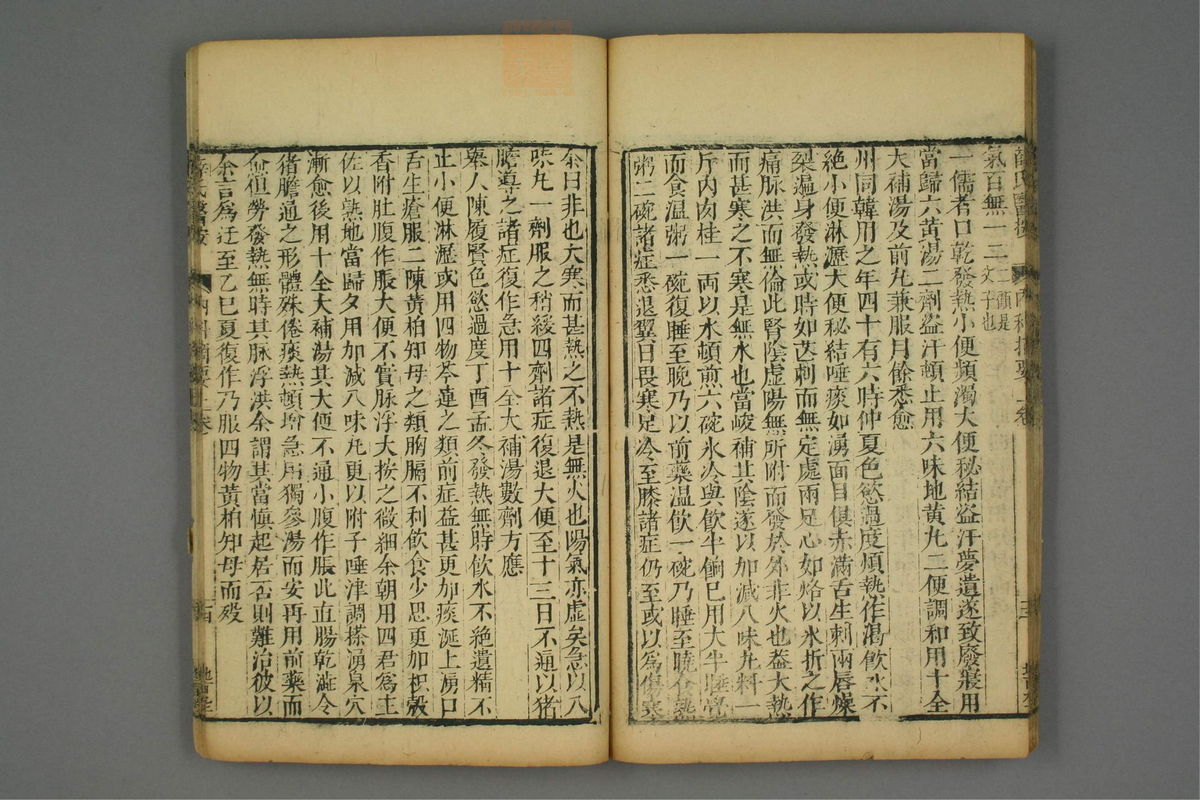 氣百無一二 二直是文子也
一儒者口乾發熱小便頻濁大便秘結盗汗夢遺遂致廢寢用
當歸六黃湯二劑盗汗頓止用六味地黃丸二便調和用十全
大補湯及前丸兼服月餘悉愈
州同韓用之年四十有六時仲夏色慾過度煩熱作渴飲水不
絶小便淋瀝大便秘結唾痰如湧面目俱赤滿舌生刺兩唇燥
裂遍身發熱或時如芒刺而無定處兩足心如烙以氷折之作
痛脉洪而無倫此腎陰虛陽無所附而發於外非火也蓋大熱
而甚寒之不寒是無水也當峻補其陰遂以加減八味丸料一
斤內肉桂一両以水頓煎六碗氷冷與飲半餉已用大半睡覺
而食温粥一碗復睡至晩乃以前藥温飲一碗乃睡至曉食熱
粥二碗諸症悉退翌日畏寒足冷至膝諸症仍至或以爲傷寒
余曰非也大寒而甚熱之不熱是無火也陽氣亦虛矣急以八
味丸一劑服之稍緩四劑諸症復退大便至十三日不通以猪
膽導之諸症復作急用十全大補湯數劑方應
舉人陳履賢色慾過度丁酉孟冬發熱無時飲水不絶遺精不
止小便淋瀝或用四物芩連之類前症益甚更加痰涎上湧口
舌生瘡服二陳黃柏知母之類胸膈不利飲食少思更加枳殼
香附肚腹作脹大便不實脉浮大按之微細余朝用四君爲主
佐以熟地當歸夕用加減八味丸更以附子唾津調搽湧泉穴
漸愈後用十全大補湯其大便不通小腹作脹此直腸乾澁令
猪膽通之形體殊倦痰熱頓增急用獨參湯而安再用前藥而
愈但勞發熱無時其脉浮洪余謂其當愼起居否則難治彼以
余言爲迂至乙巳夏復作乃服四物黃柏知母而歿
薛氏醫按 內科摘要上卷